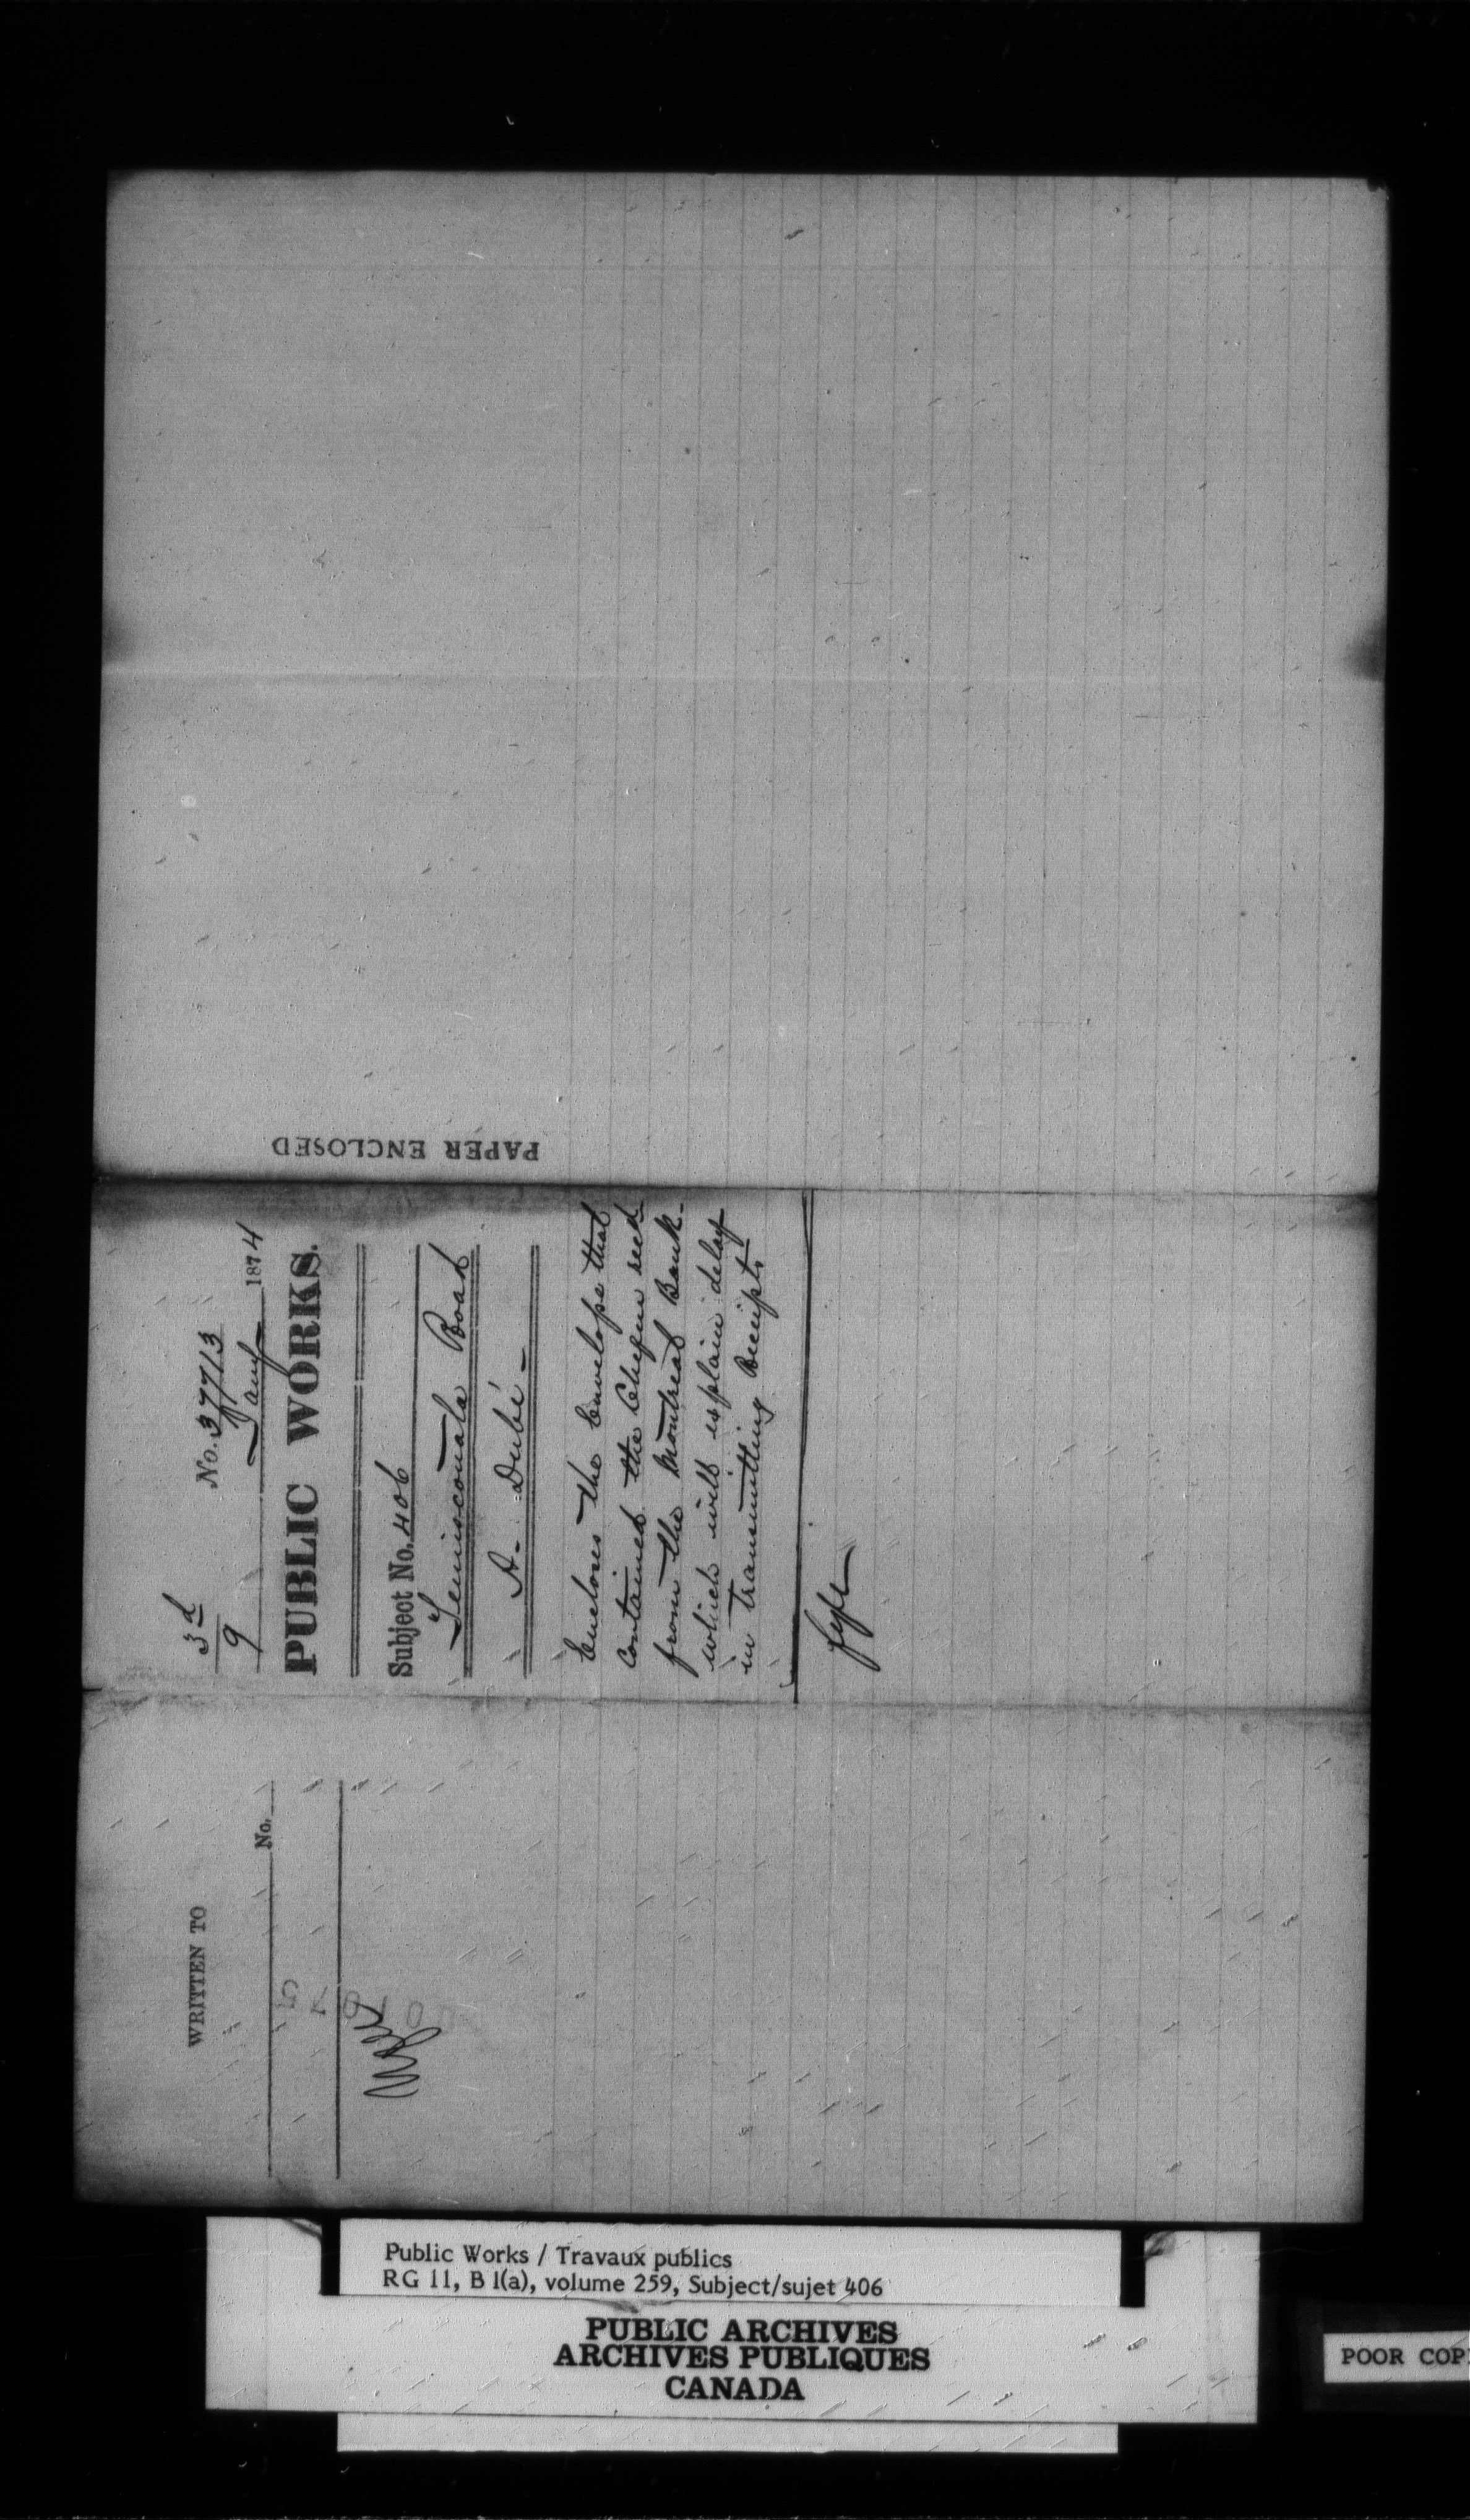 PAPER ENCLOSED
3d
9
No. 37713
Jany 1874
PUBLIC WORKS.
Subject No. 406
Temiscouata Road
A. Dubé -
Encloses the Envelope that
contained the Cheque recd
from the Montreal Bank -
which will explain delay
in transmitting Receipts
fyle
WRITTEN TO
No.
Public Works / Travaux publics
RG 11, B 1(a), volume 259, Subject/sujet 406
PUBLIC ARCHIVES
ARCHIVES PUBLIQUES
CANADA
POOR COP